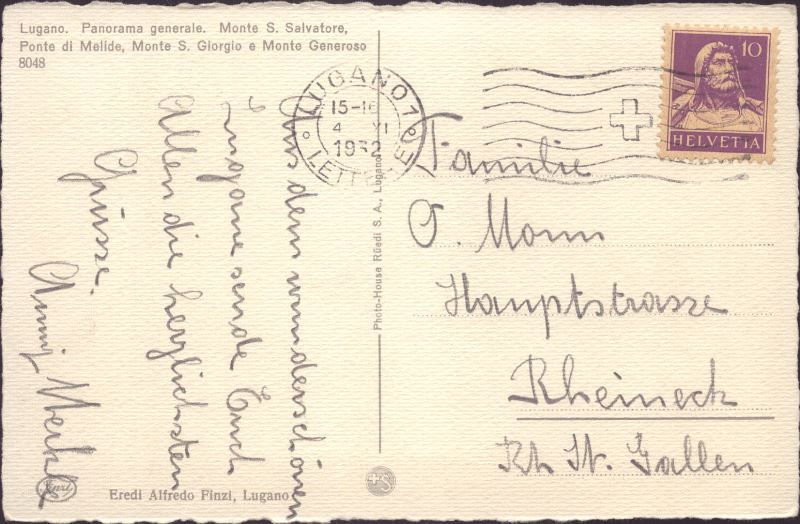 Lugano. Panorama generale. Monte S. Salvatore,
Ponte di Melide, Monte S. Giorgio e Monte Generoso
8048
LUGANO 1
15-16
4 VI
1932
LETTERE
10
HELVETIA
Aus dem wunderschönen
Lugano sende Euch
Allen die herzlichsten
Grüsse.
Photo-House Rüedi S. A., Lugano
Familie
O.
Hauptstrasse
Rheineck
Kt St. Gallen
Eredi Alfredo Finzi, Lugano